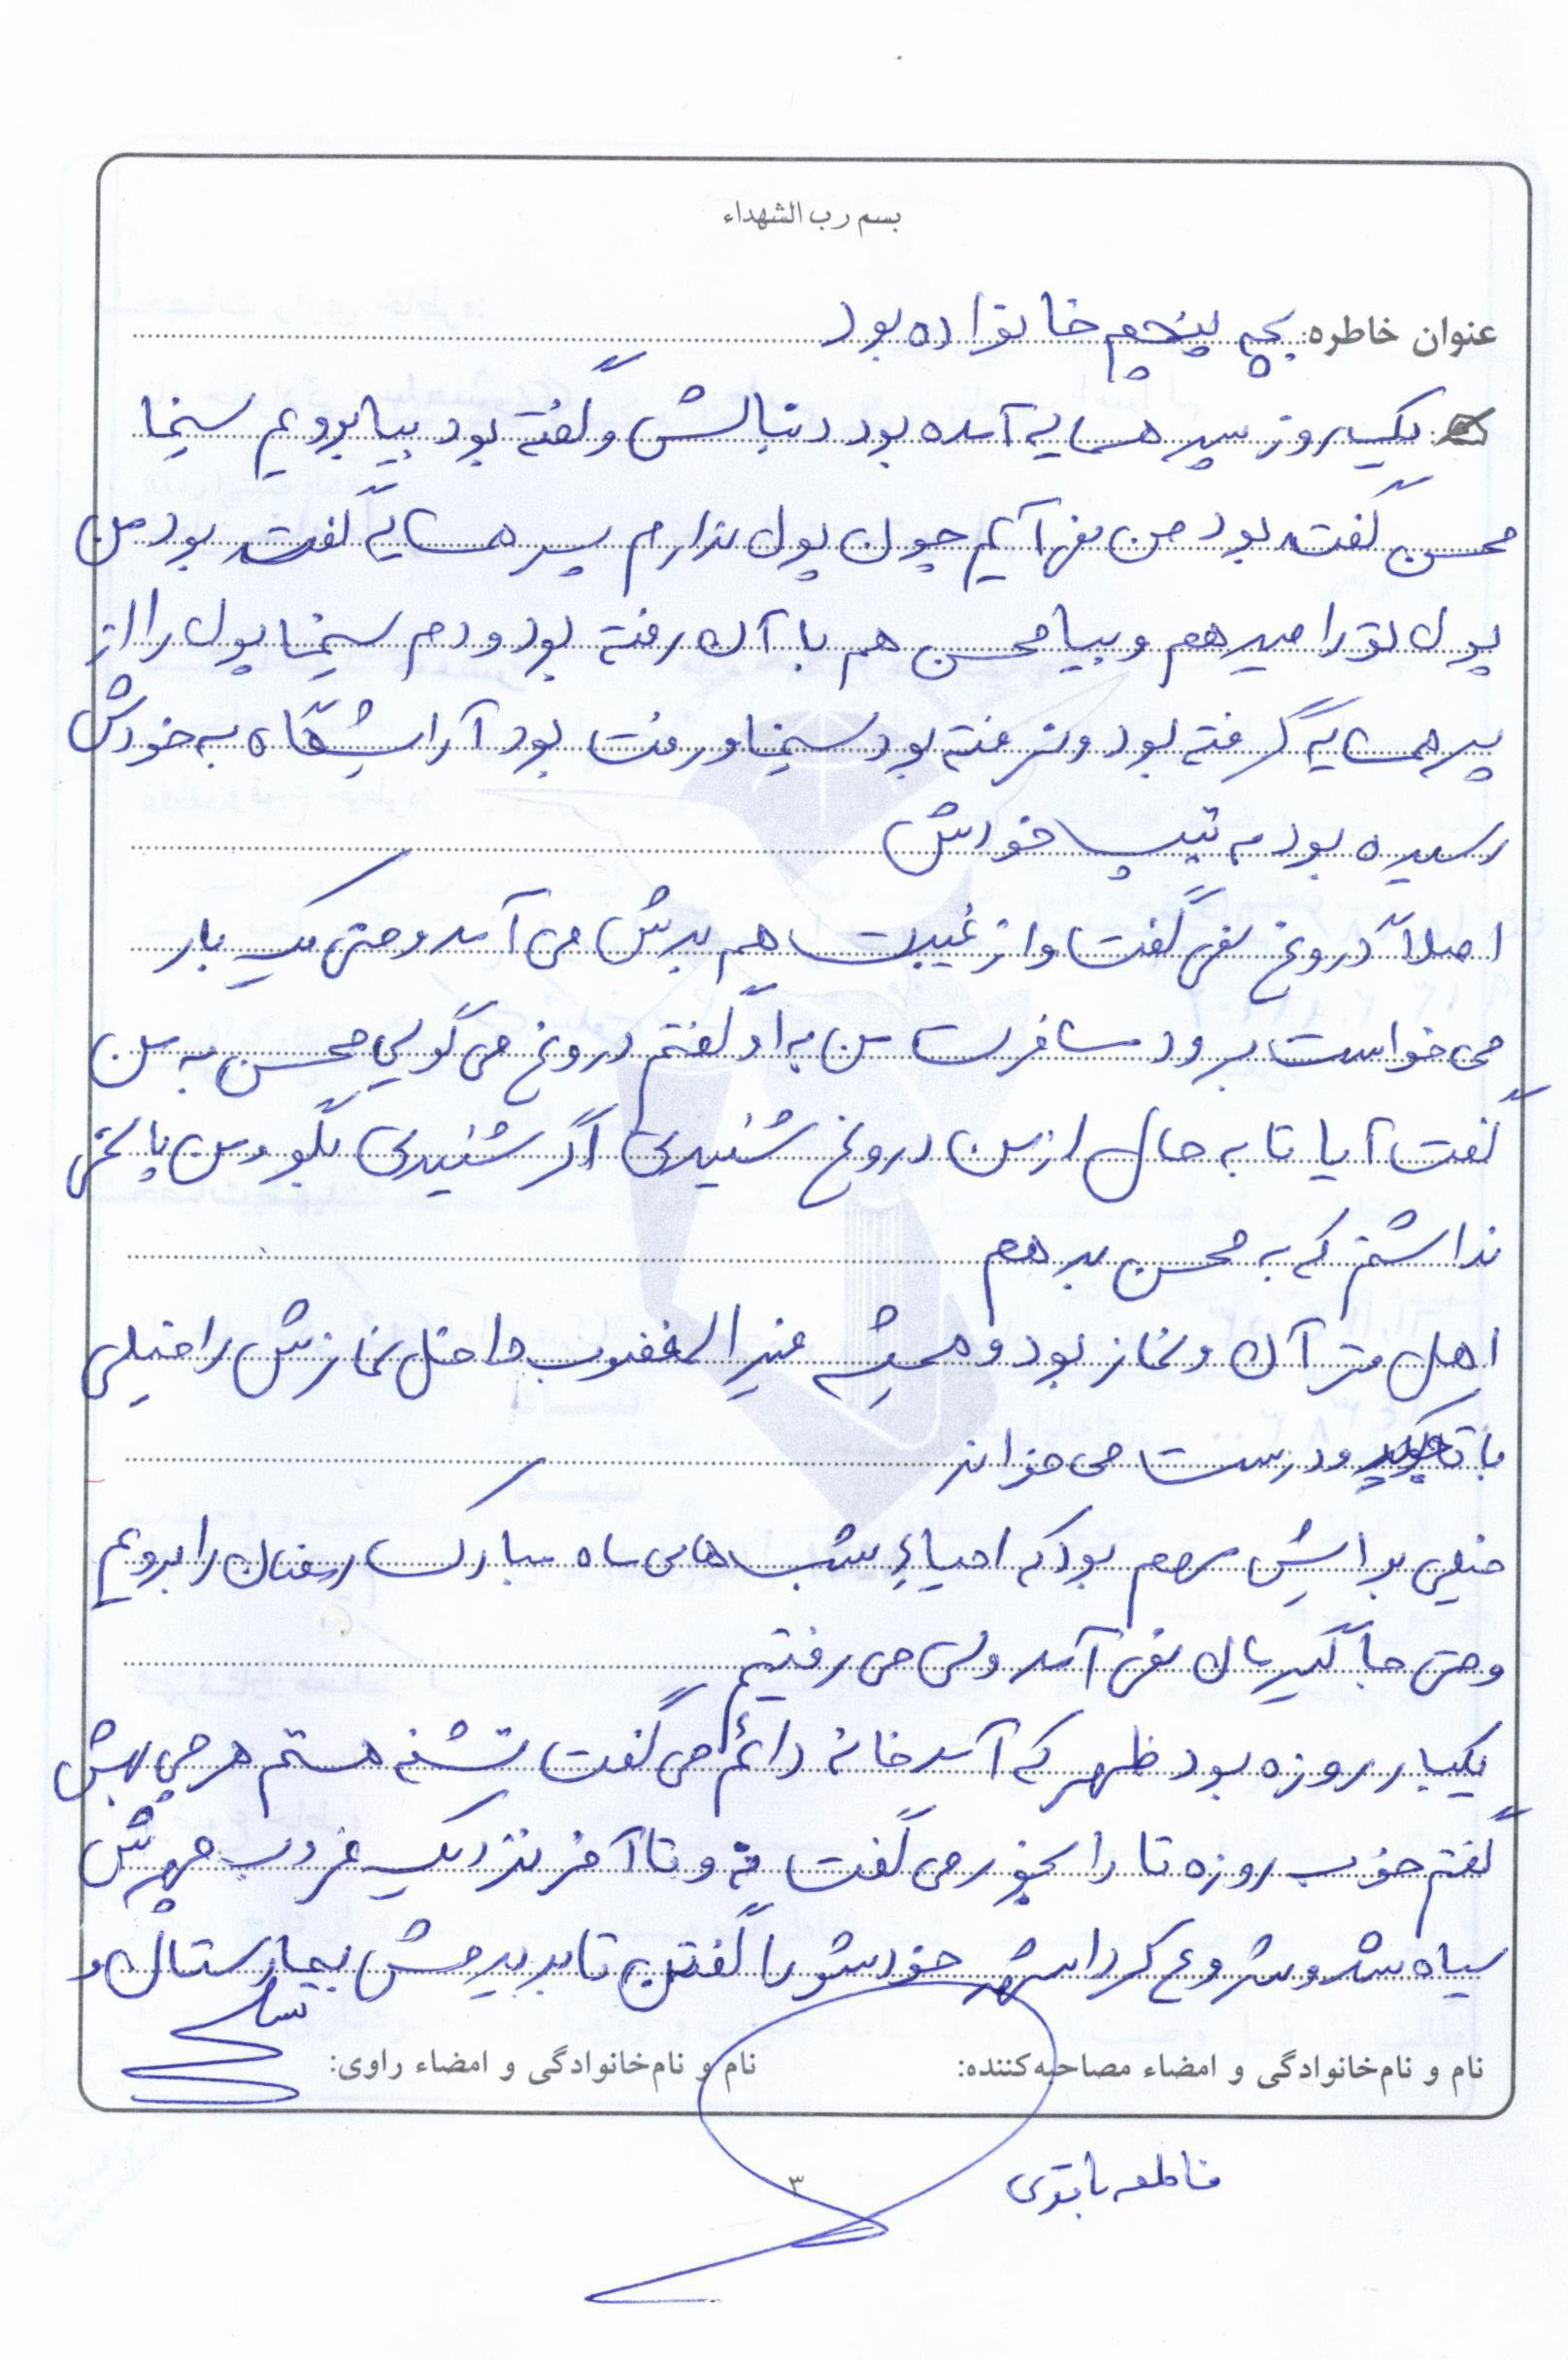 بسم رب الشهداء
عنوان خاطره: بچه پنجم خانواده بود
یک روز پسر همسایه آمده بود دنبالش و گفته بود بیا برویم سینما
محسن گفته بود من نمی آیم چون پول ندارم پسر همسایه گفته بود من
پول تو را میدهم و بیا محسن هم با آن رفته بود و دم سینما پول را از
پسر همسایه گرفته بود و نرفته بود سینما و رفته بود آرایشگاه به خودش
رسیده بود به تیپ خودش
اصلاً دروغ نمی گفت و از غیبت هم بدش می آمد و حتی یک بار
می خواست برود مسافرت من به او گفتم دروغ می گویی محسن به من
گفت آیا تا به حال از من دروغ شنیدی اگر شنیدی بگو و من پاسخی
نداشتم که به محسن بدهم
اهل قرآن و نماز بود و همیشه غیر المغضوب داخل نمازش را خیلی
با تجوید و درست می خواند
خیلی برایش مهم بود که احیاء شب های ماه مبارک رمضان را برویم
و حتی جا گیرمان نمی آمد ولی می رفتیم
یکبار روزه بود ظهر که آمد خانه دائم می گفت تشنه هستم هر چی بهش
گفتم خوب روزه تا را بخور می گفت نه و تا آخر نزدیک غروب چهرش
سیاه شد و شروع کرد اشهد خودشو را گفتن تا بردیمش بیمارستان و
نام و نام‌خانوادگی و امضاء مصاحبه‌کننده: نام و نام‌خانوادگی و امضاء راوی:
فاطمه
۳